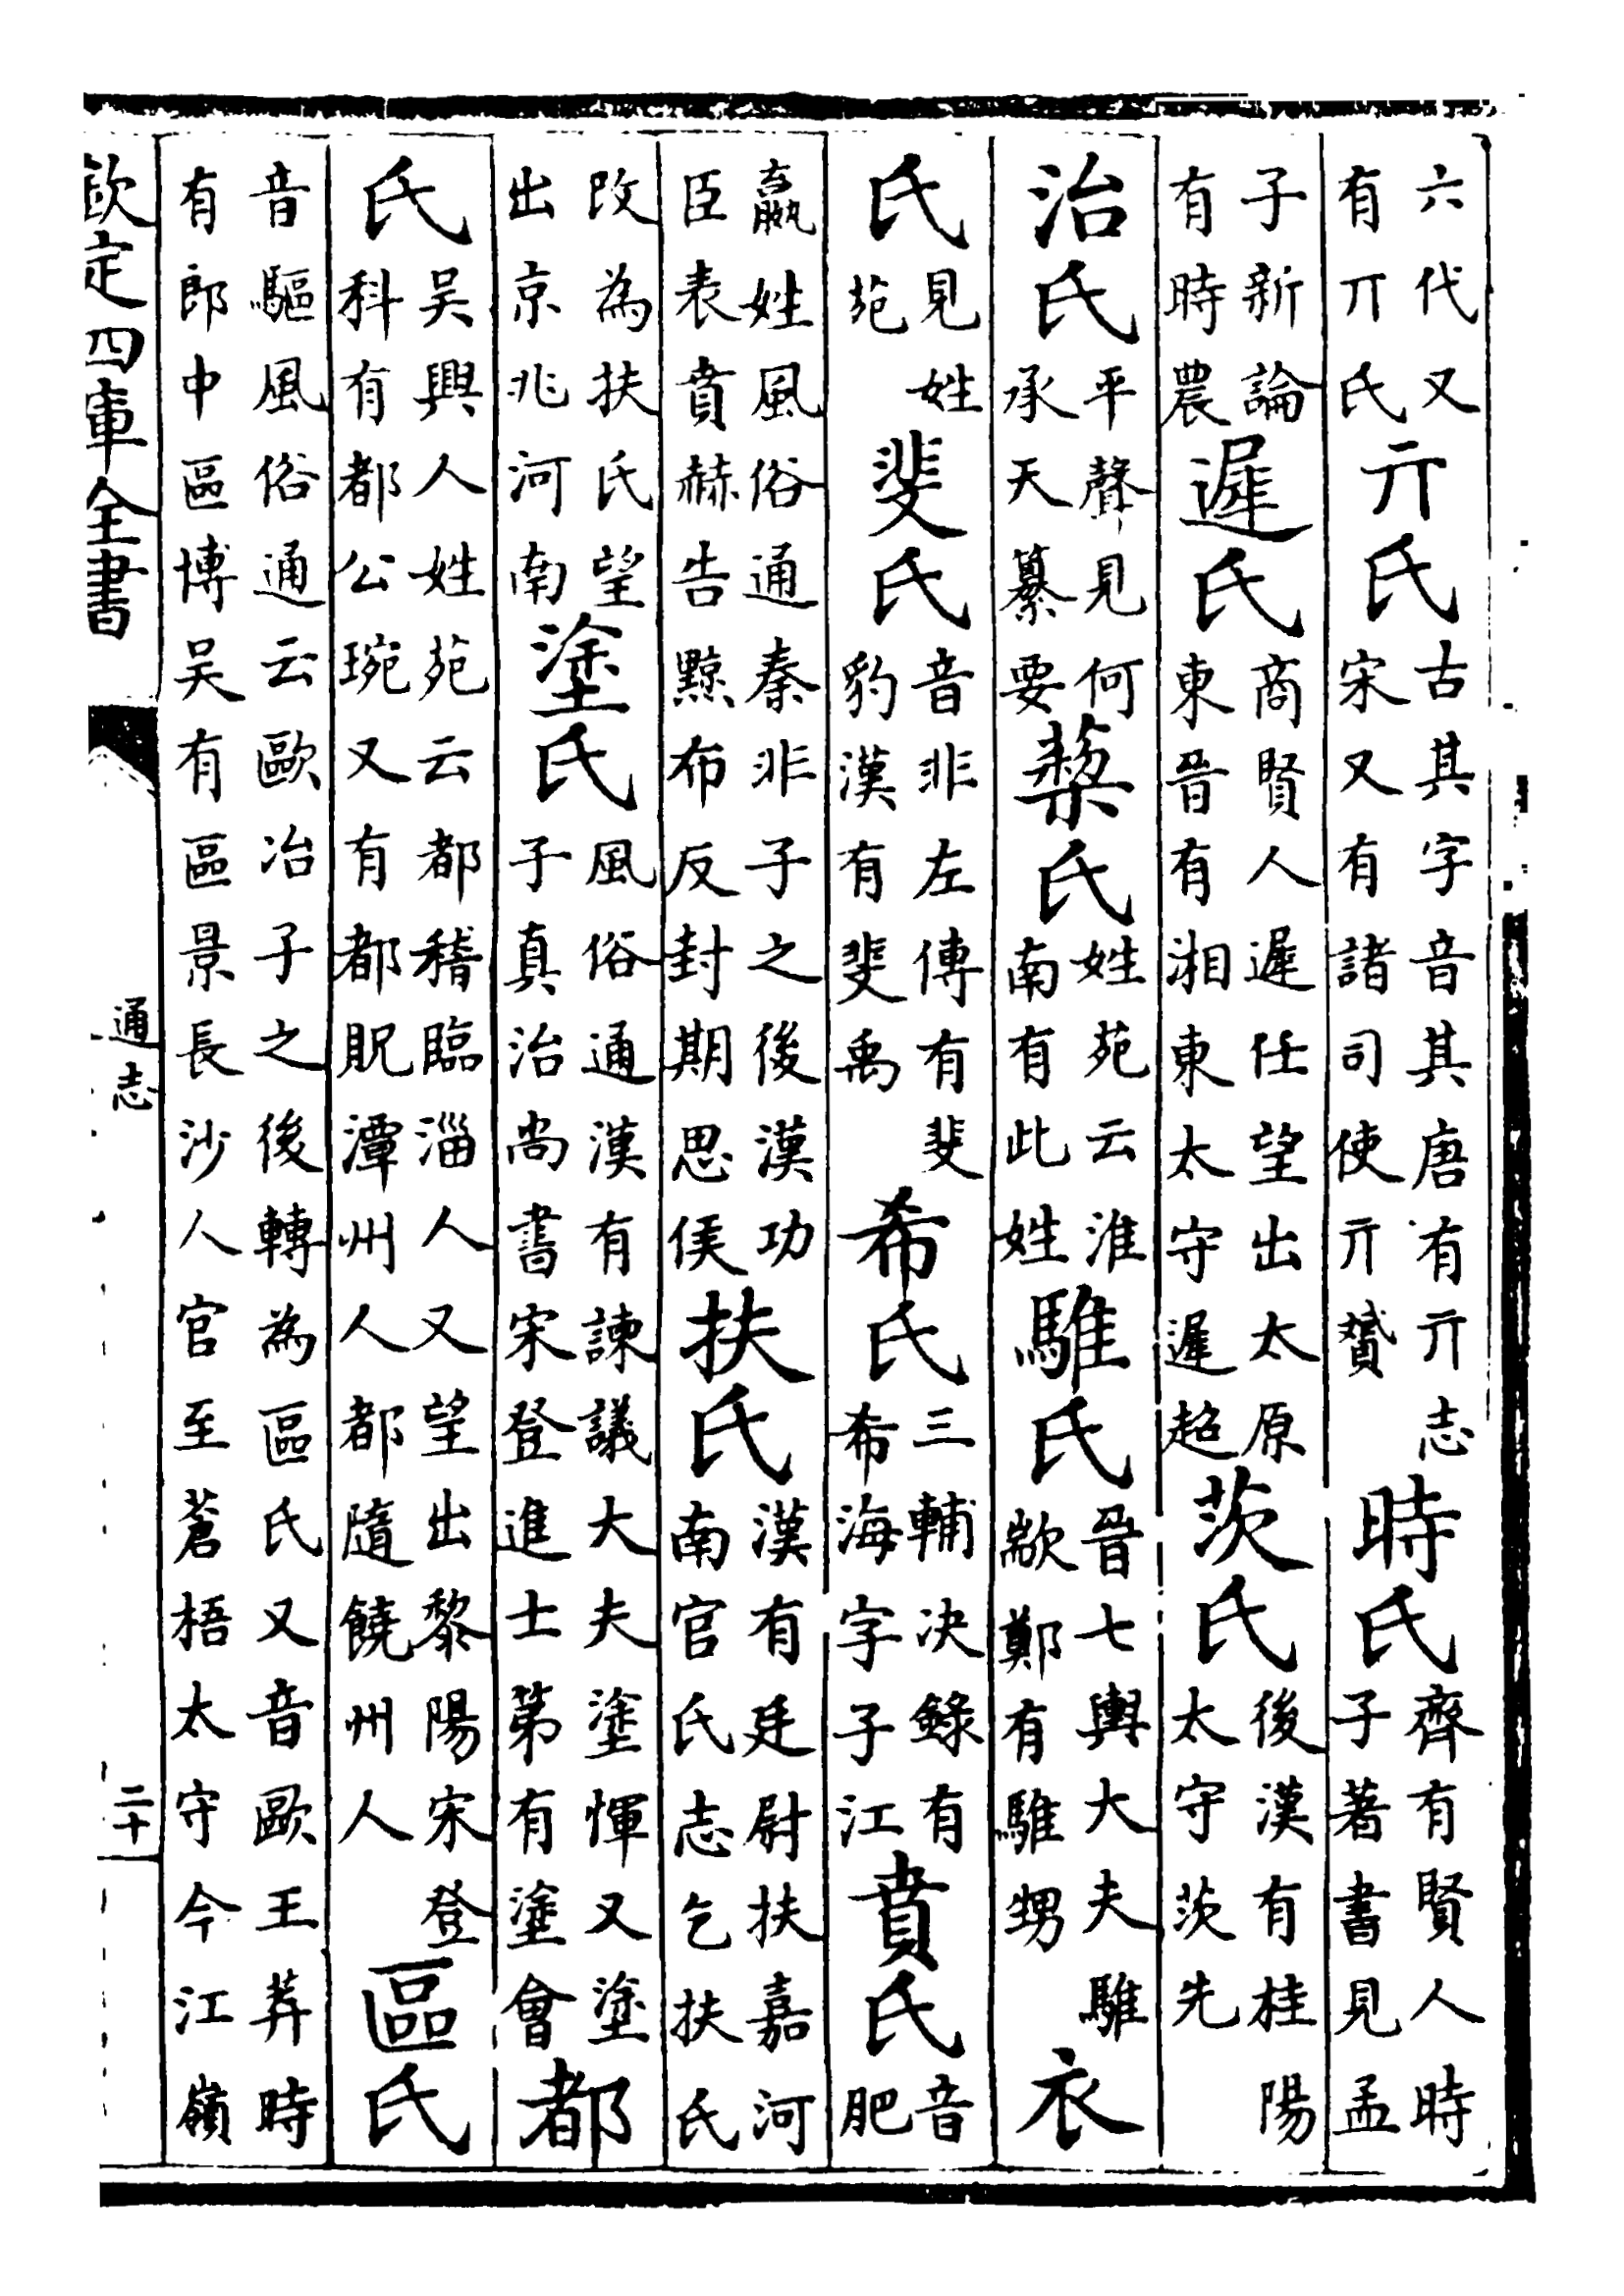 六代又有丌氏亓氏古其字音其唐有亓志宋又有諸司使亓贇時氏齊有賢人時子著書見孟
子新論有時農遲氏商賢人遲任望出太原東晉有湘東太守遲超茨氏後漢有桂陽太守茨先
治氏平聲見何承天纂要蔾氏姓苑云淮南有此姓騅氏晉七輿大夫騅歂鄭有騅甥衣
氏見姓苑斐氏音非左傳有斐豹漢有斐禹希氏三輔决錄有希海字子江賁氏音肥
嬴姓風俗通秦非子之後漢功臣表賁赫告黥布反封期思侯扶氏漢有廷尉扶嘉河南官氏志乞扶氏
改為扶氏望出京兆河南塗氏風俗通漢有諫議大夫塗惲又塗子真治尚書宋登進士第有塗會都
氏吴興人姓苑云都稽臨淄人又望出黎陽宋登科有都公琬又有都貺潭州人都隨饒州人區氏
音驅風俗通云歐冶子之後轉為區氏又音歐王莽時有郎中區博吴有區景長沙人官至蒼梧太守今江嶺
欽定四庫全書
通志
二十